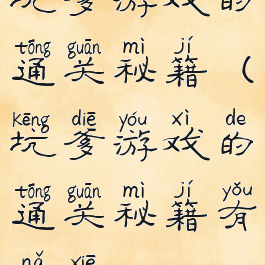 坑爹游戏的
tōng guān mì jí
通关秘籍（
kēng diē yóu xì de
坑爹游戏的
tōng guān mì jí yǒu
通关秘籍有
nǎ xiē